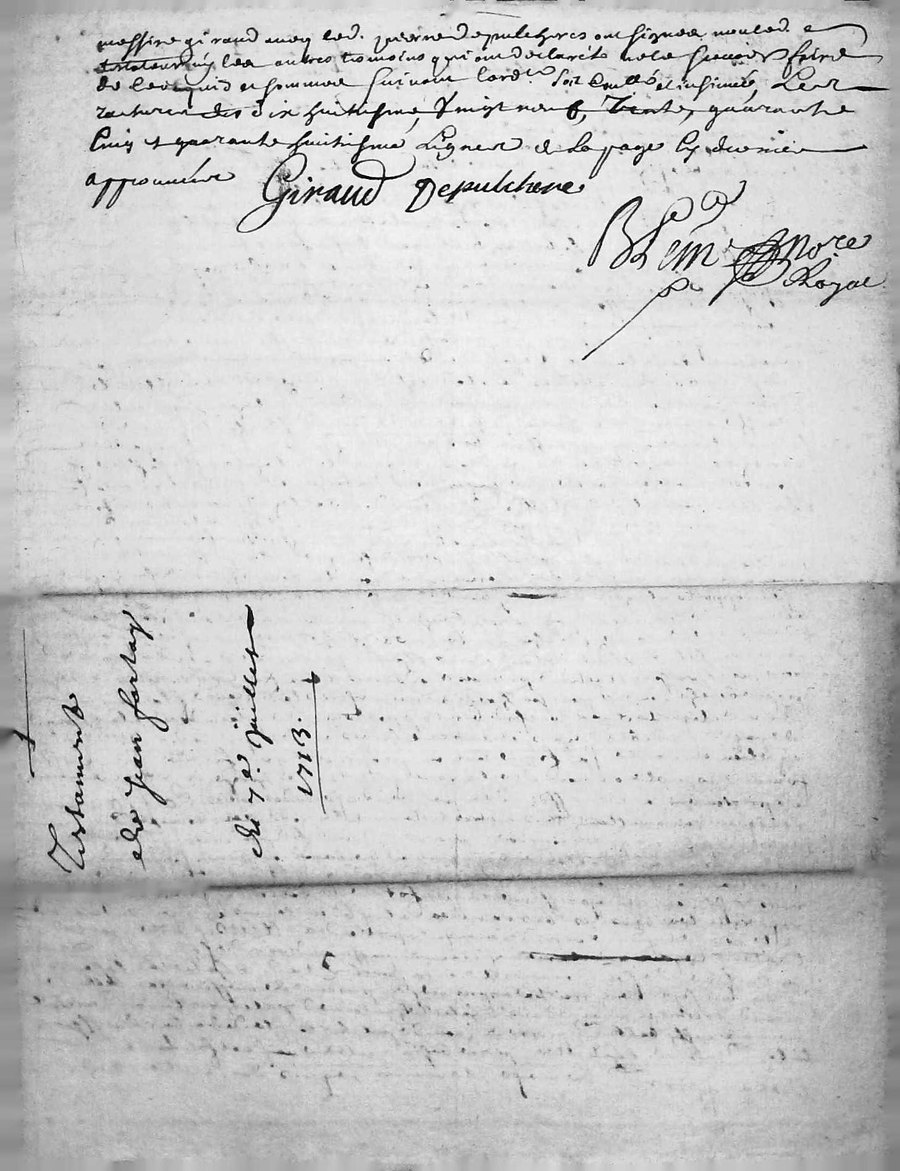 messire giraud avey led. pierre depulchere ont signés non led.
testateur ny les autres temoins qui ont declaré ne le sçavoir faire
de ce requis et sommés suivant lord.ce soit controllé et insinué, Les
ratures des dix huitiesme, vingt neuf, Trente, quarante
Cinq et quarante huitiesme Lignes de La page Cy
approuvées
Giraud Depulchere
Blein Nore
Royal
Testament
de Jean
du 7e. Juillet
1713.